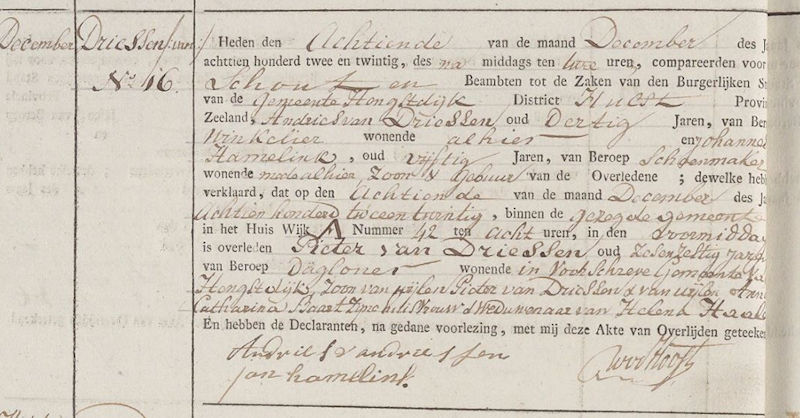 December
Driessen /:van:/
No. 46
Heden den Achtiende van de maand December des
achttien honderd twee en twintig, des na middags ten twee uren, compareerden voor
Schout en Beambten tot de Zaken van den Burgerlijken
van de Gemeente Hengstdijk District Hulst
Zeeland, Andries van Driessen oud Dertig Jaren, van
Winkelier wonende alhier en Johannes
Hamelink, oud vijftig Jaren, van Beroep Schoenmaker
wonende mede alhier Zoon & Gebuur van de Overledene ; dewelke
verklaard, dat op den Achtiende van de maand December des
Achtien honderd twee en twintig, binnen de gezegde gemeente
in het Huis Wijk A Nummer 42 ten acht uren, in den voormiddag
is overleden Pieter van Driessen oud Zesenzestig jaren
van Beroep Daglooner wonende in Voorschreve Gemeente
Hengstdijk Zoon van wijlen Pieter van Driessen & van wijlen
Catharina Baart Weduwenaar van Helena
En hebben de Declaranten, na gedane voorlezing, met mij deze Akte van Overlijden
Andries van driessen
jan hamelink